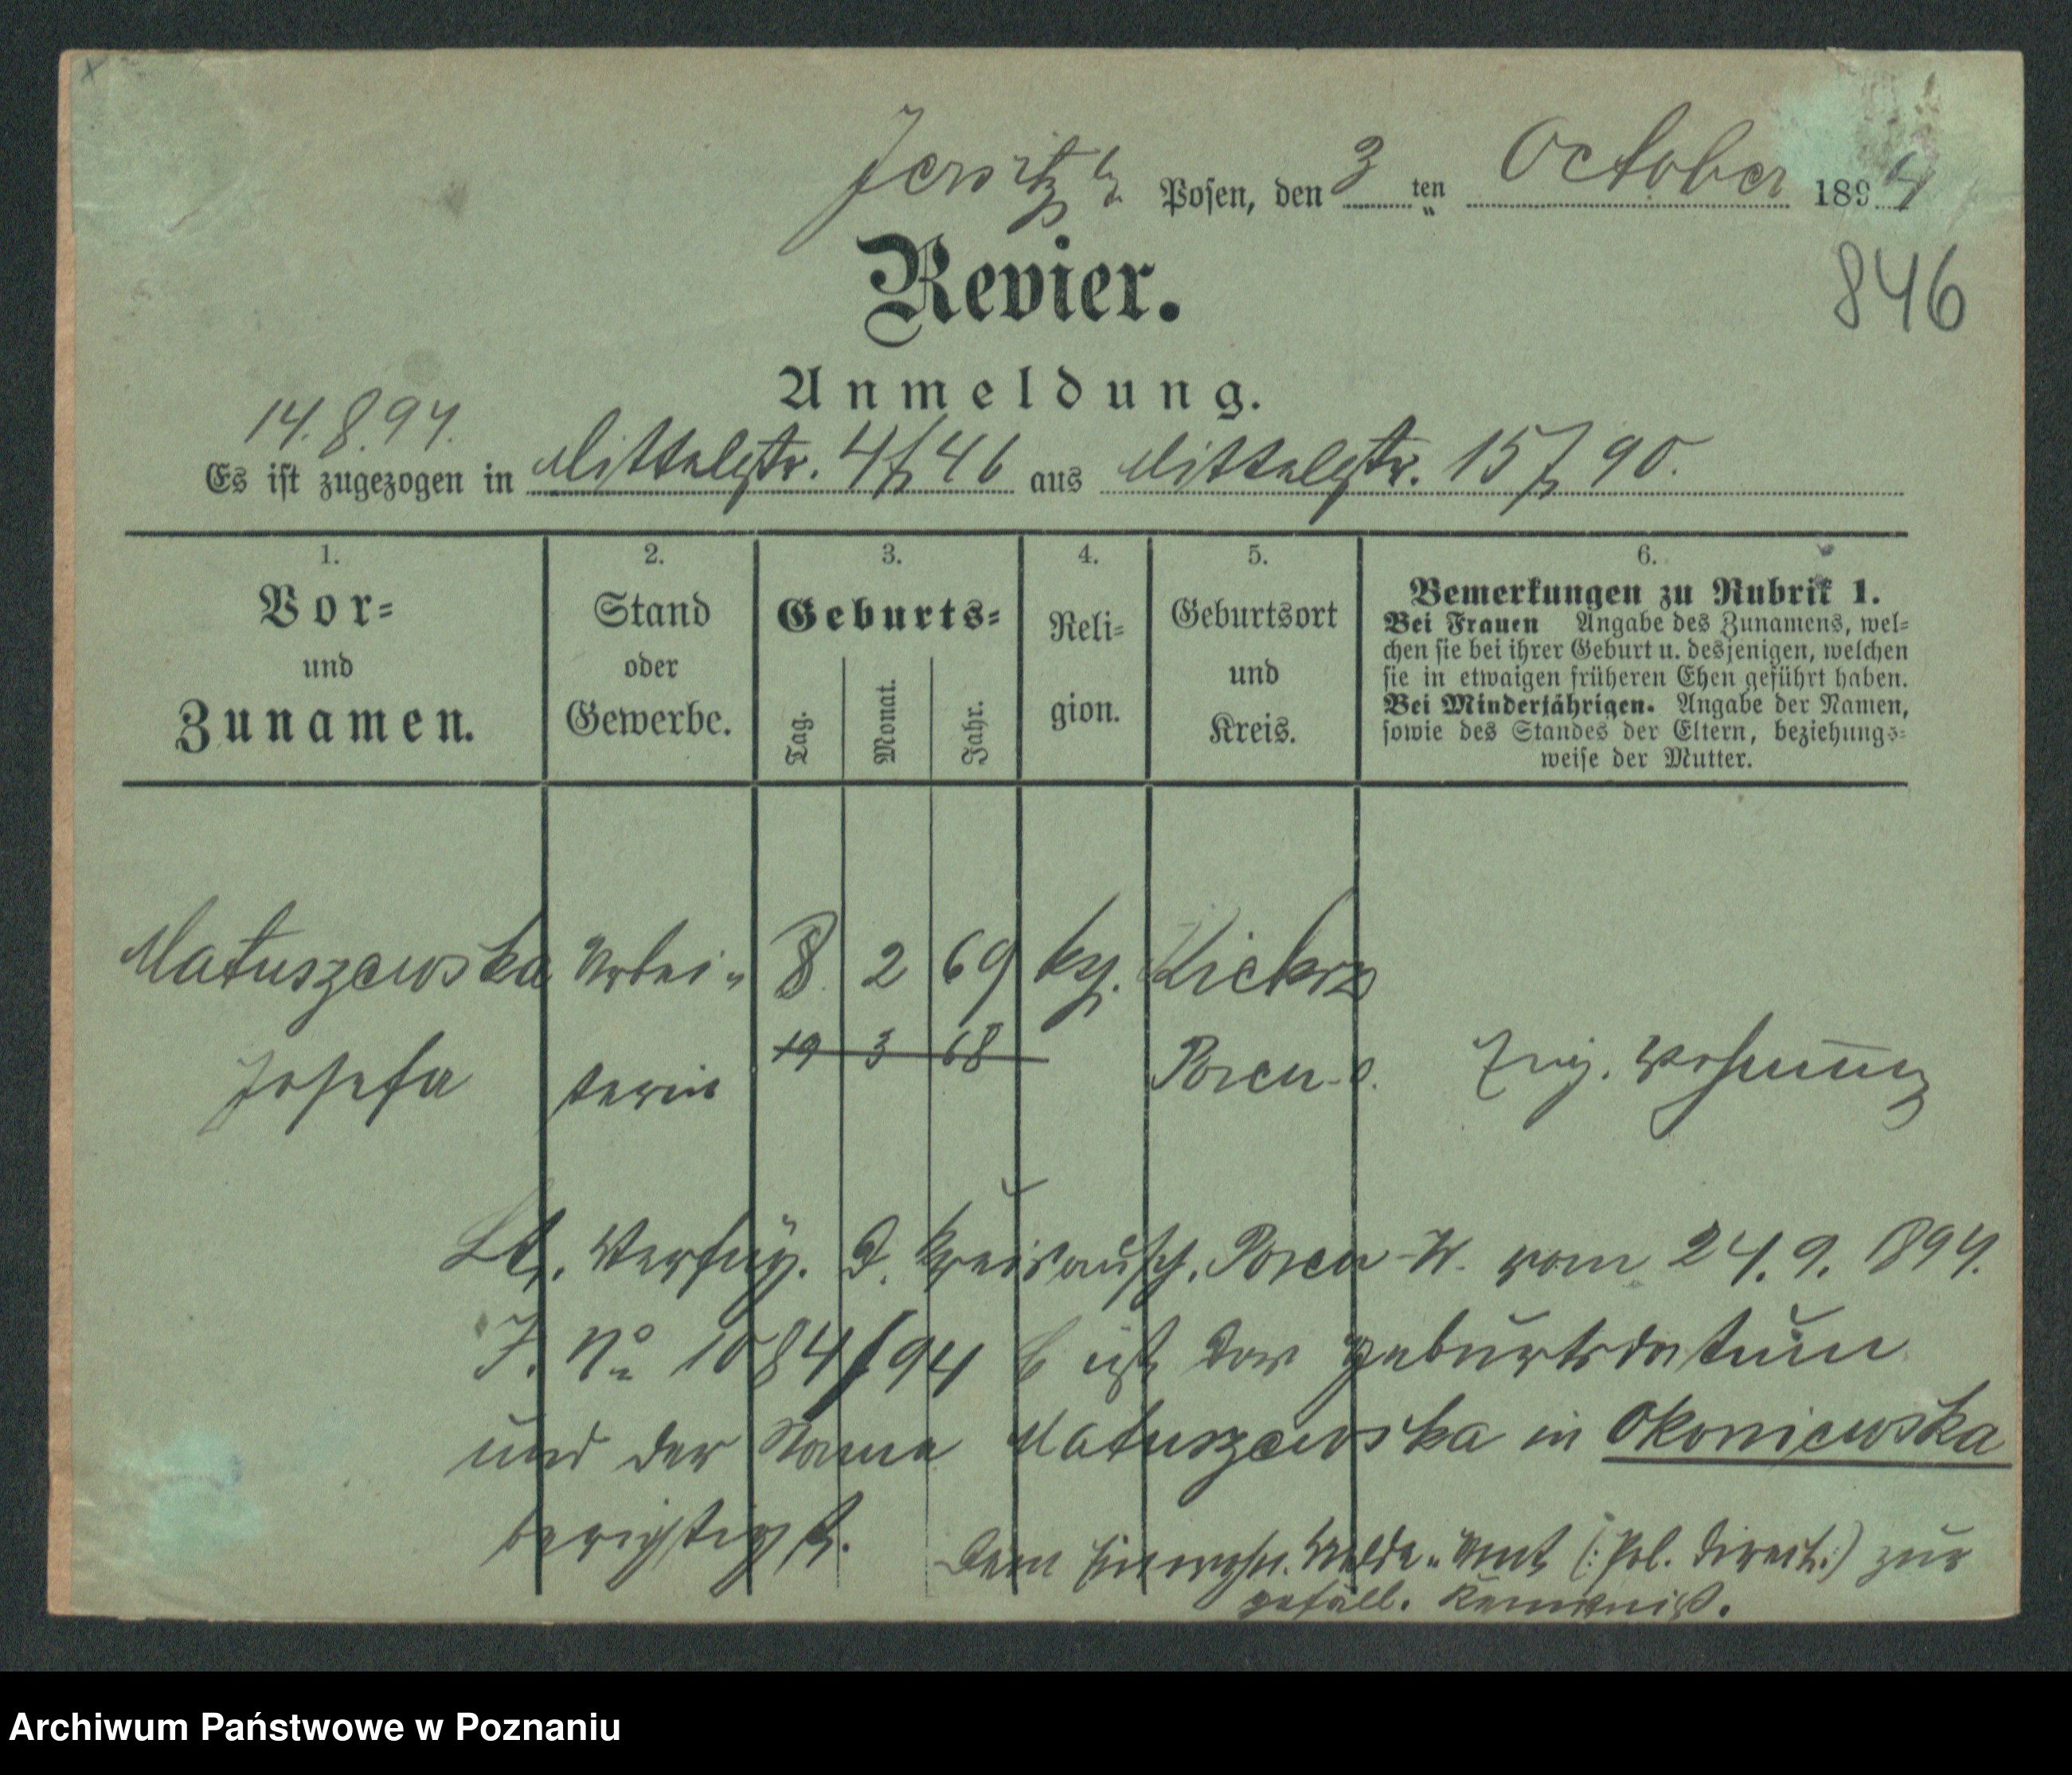 Jersitz b. Posen, den 3 ten October 1894
846
Revier.
Anmeldung.
14.8.94.
Es ist zugezogen in Mittelstr. 4 b/ 46 aus Mittelstr. 15 b/ 90.
1. 2. 3. 4. 5. 6.
Vor= und Zunamen.
Stand oder Gewerbe.
Geburts=
Tag. Monat. Jahr.
Reli=
gion.
Geburtsort
und
Kreis.
Bemerkungen zu Rubrik 1.
Bei Frauen Angabe des Zunamens, wel=
chen sie bei ihrer Geburt u. desjenigen, welchen
sie in etwaigen früheren Ehen geführt haben.
Bei Minderjährigen. Angabe der Namen,
sowie des Standes der Eltern, beziehungs=
weise der Mutter.
Matuszewska Arbei= 8 2 69 Kiekrz
19 3 68
Josefa terin Posen Eig. Wohnung
Lt. Verfüg. d. Kreisaussch. Posen-W. vom 24.9.1894.
J. No 1084/94 ist das Geburtsdatum
und der Name Matuszewska in Okoniewska
berichtigt.
Dem Einwohn. Melde=Amt (: Pol. Direct :) zur
gefäll. Kenntniß.
Archiwum Państwowe w Poznaniu